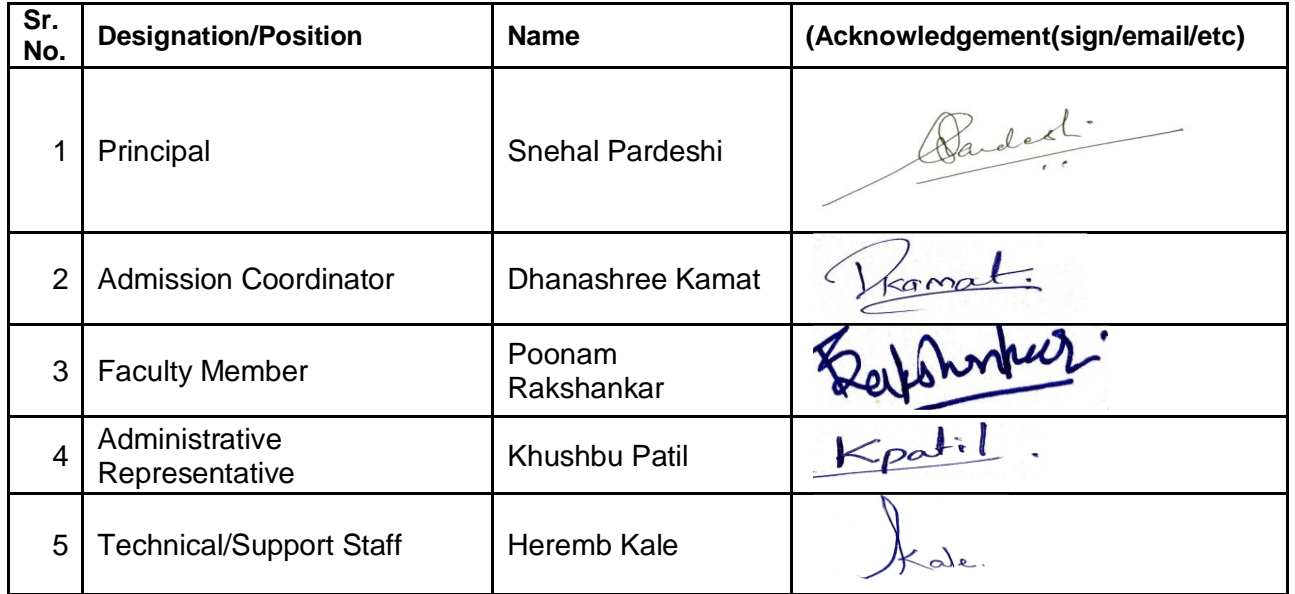 Sr. No. Designation/Position Name (Acknowledgement(sign/email/etc)
1 Principal Snehal Pardeshi Pardeshi
2 Admission Coordinator Dhanashree Kamat Dkamat.
3 Faculty Member Poonam Rakshankar Rakshankar.
4 Administrative Representative Khushbu Patil Kpatil.
5 Technical/Support Staff Heremb Kale Kale.